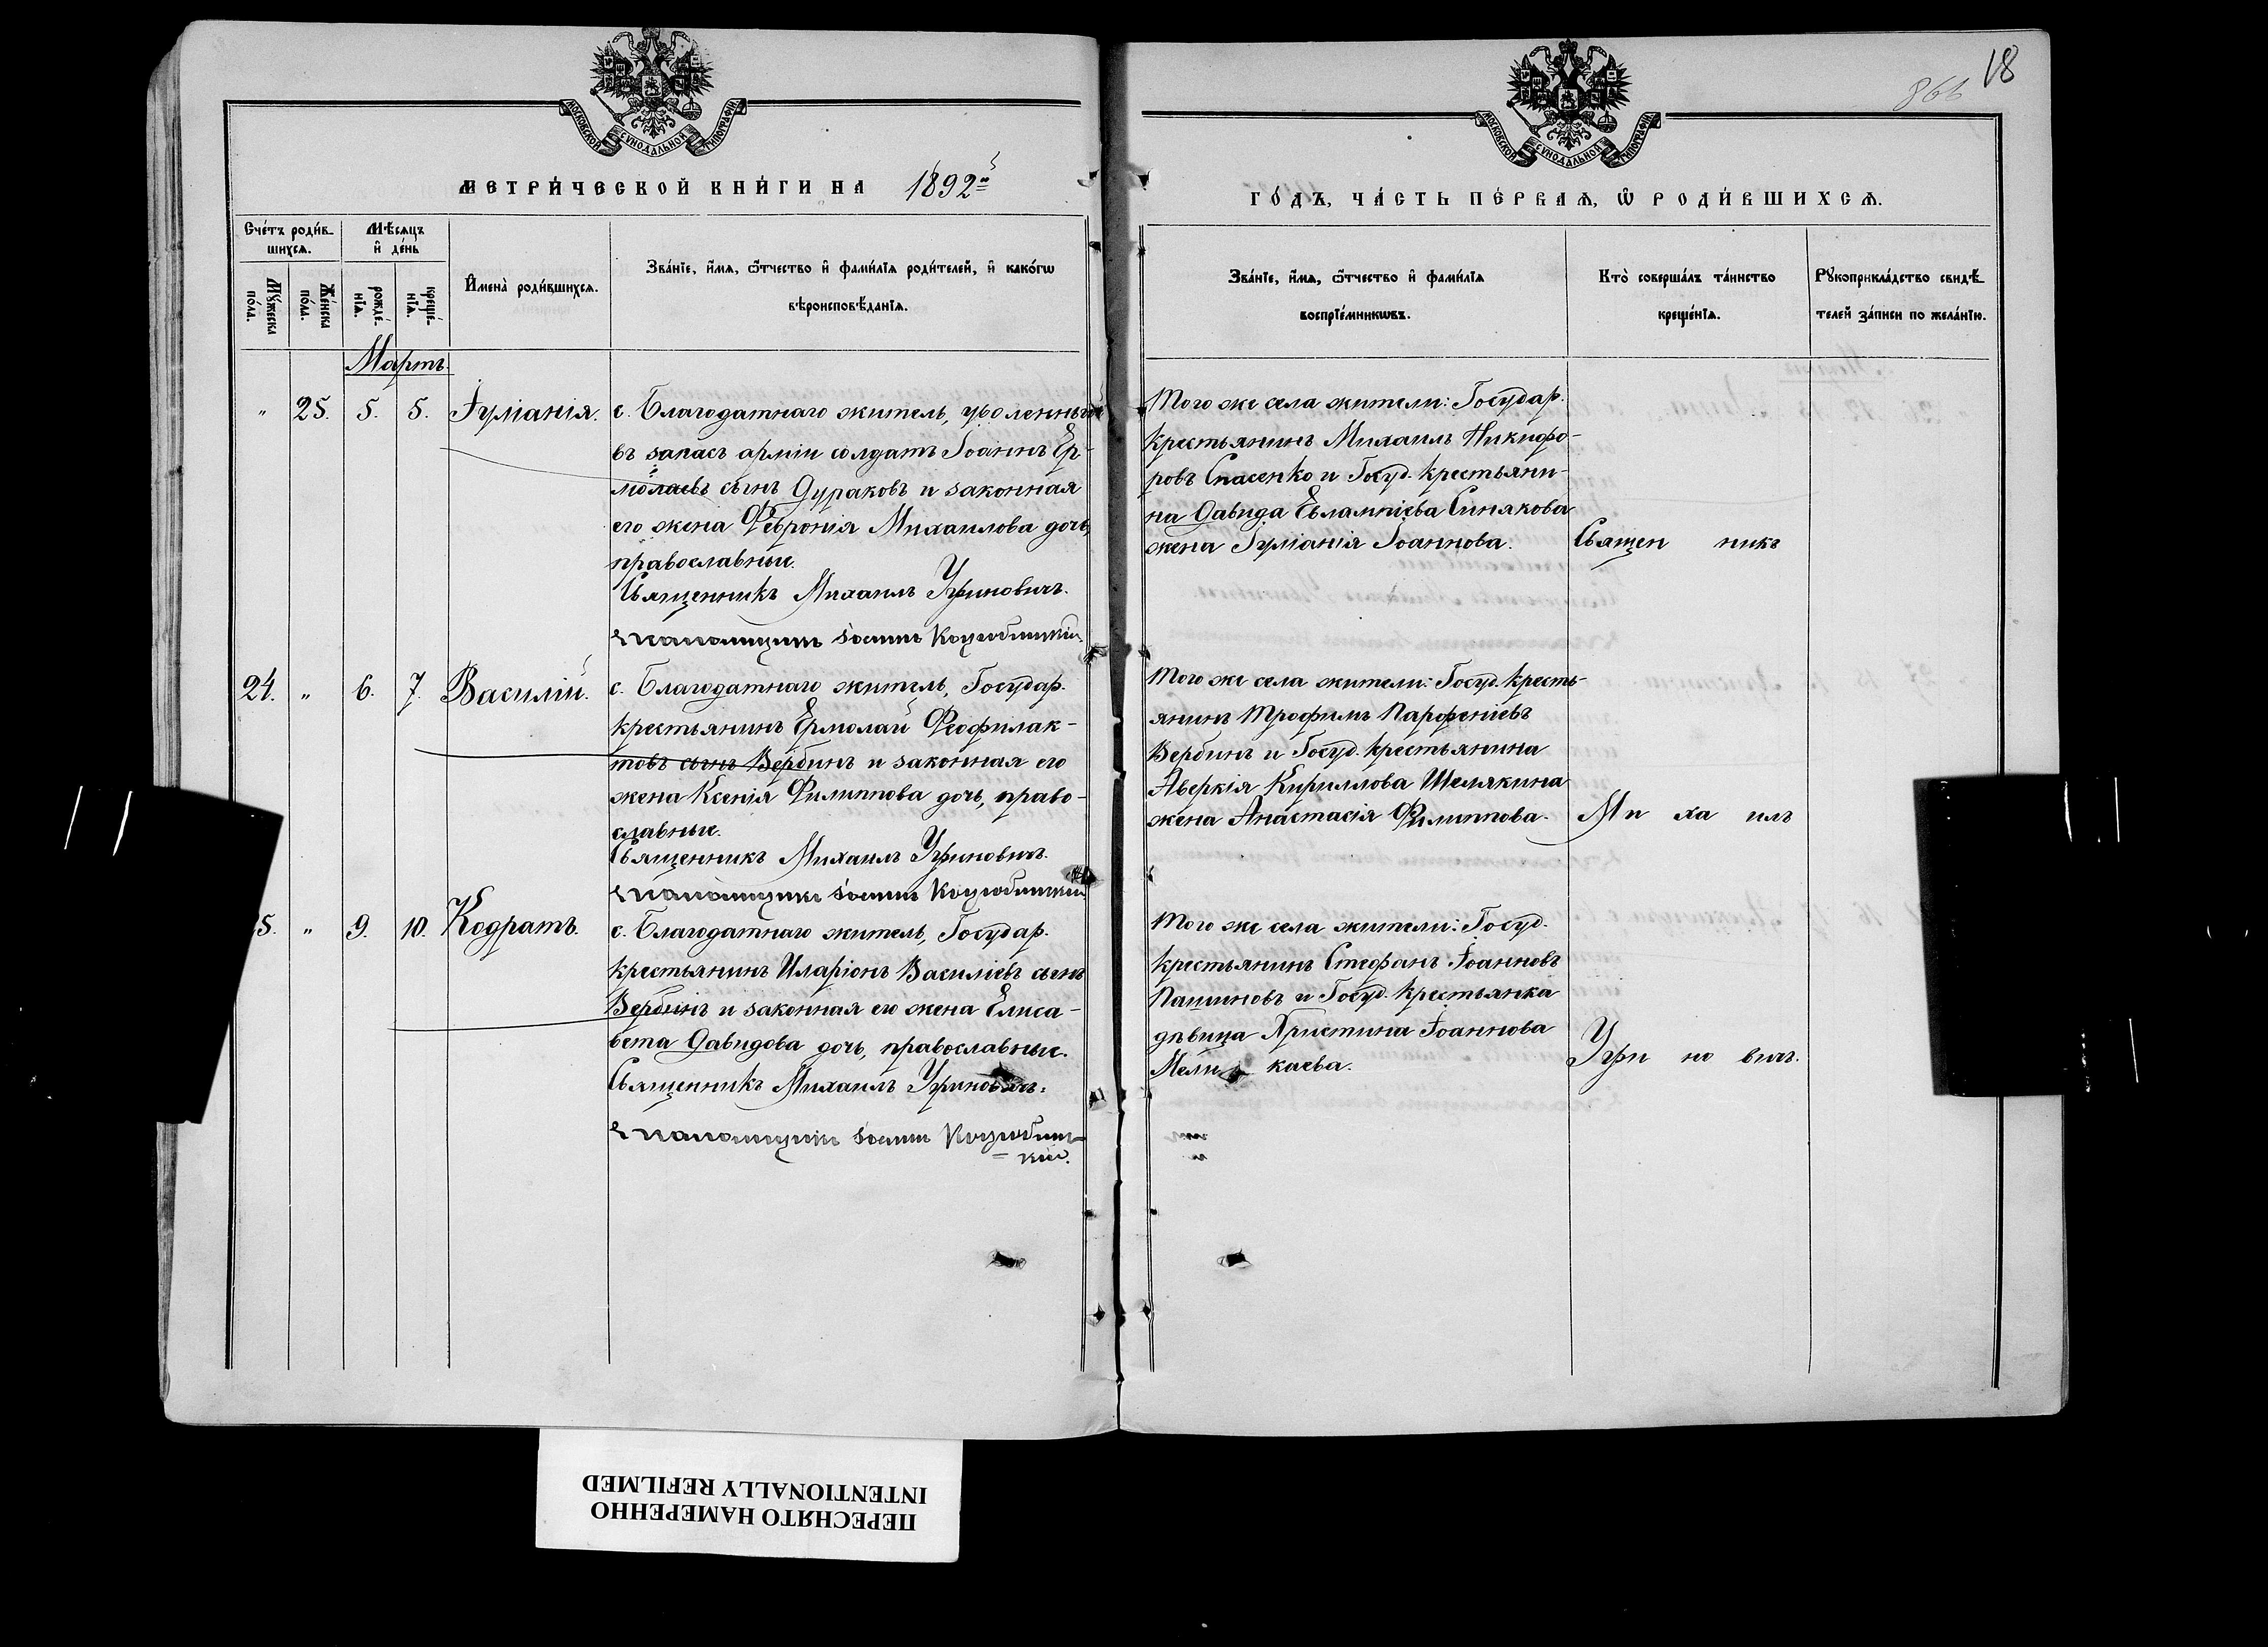 18
866
МОСКОВСКОЙ СѴНОДАЛЬНОЙ ТИПОГРАФІИ
МОСКОВСКОЙ СѴНОДАЛЬНОЙ ТИПОГРАФІИ
МЕТРИ́ЧЕСКОЙ КНИ́ГИ НА 1892й
ГО́ДЪ, ЧА́СТЬ ПЕ́РВАѦ, Ѽ РОДИ́ВШИХСѦ.
Сче́тъ роди́в-
шихсѧ.
Мꙋ́жеска
по́ла.
Же́нска
по́ла.
Мѣ́сѧцъ
и҆ де́нь
рожде́-
нїѧ.
креще́-
нїѧ.
И҆мена̀ роди́вшихсѧ.
Зва́нїе, и҆́мѧ, ѻ҆́тчество и҆ фами́лїѧ роди́телей, и҆ како́гѡ
вѣроисповѣ́данїѧ.
Зва́нїе, и҆́мѧ, ѻ҆́тчество и҆ фами́лїѧ
воспрїе́мникѡвъ.
Кто̀ соверша́лъ та́инство
креще́нїѧ.
Рꙋкоприкла́дство свидѣ́-
телей за́писи по жела́нїю.
Мартъ.
" 25. 5. 5. Іуліанія.
с. Благодатнаго житель, уволенный
въ запасъ арміи солдатъ Іоаннъ Ер-
молаевъ сынъ Дураковъ и законная
его жена Февронія Михаилова дочь,
православные.
Священникъ Михаилъ Угриновичъ.
Псаломщикъ Іоаннъ Коцюбинскій.
Того же села жители: Государ.
крестьянинъ Михаилъ Никифо-
ровъ Спасенко и Госуд. крестьяни-
на Давида Евлампіева Синякова
жена Іуліанія Іоаннова.
Священ никъ
24. " 6. 7. Василій.
с. Благодатнаго житель, Государ.
крестьянинъ Ермолай Феофилак-
товъ сынъ Вербинъ и законная его
жена Ксенія Филиппова дочь, право-
славные.
Священникъ Михаилъ Угриновичъ.
Псаломщикъ Іоаннъ Коцюбинскій
Того же села жители: Госуд. кресть-
янинъ Трофимъ Парфеніевъ
Вербинъ и Госуд. крестьянина
Аверкія Кириллова Шелякина
жена Анастасія Филиппова.
Ми ха илъ
5. " 9. 10. Кодратъ.
с. Благодатнаго житель, Государ.
крестьянинъ Иларіонъ Василіевъ сынъ
Вербинъ и законная его жена Елиса-
вета Давидова дочь, православные.
Священникъ Михаилъ Угриновичъ.
Псаломщикъ Іоаннъ Коцюбин-
скій.
Того же села жители: Госуд.
крестьянинъ Стефанъ Іоанновъ
Пашиновъ и Госуд. крестьянка
дѣвица Христина Іоаннова
каева.
Угри но вичъ.
ПЕРЕСНЯТО НАМЕРЕННО
INTENTIONALLY REFILMED